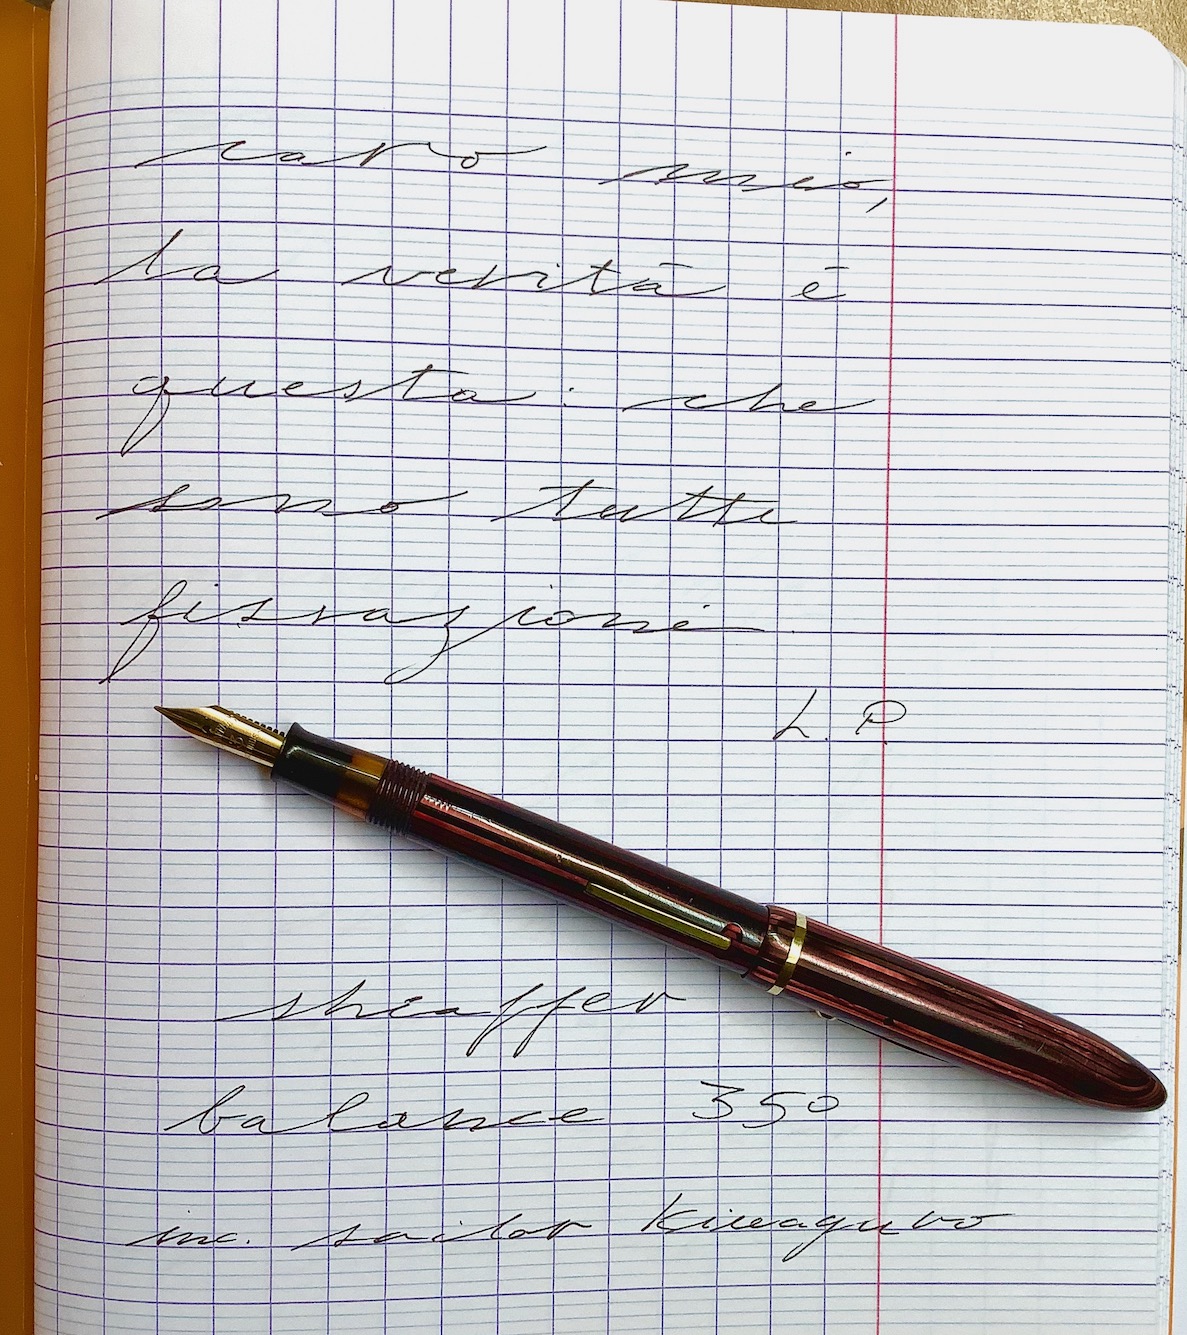 caro mio,
la verità è
questa: che
sono tutte
fissazioni.
L. P.
sheaffer
balance 350
inc. sailor Kiwaguro